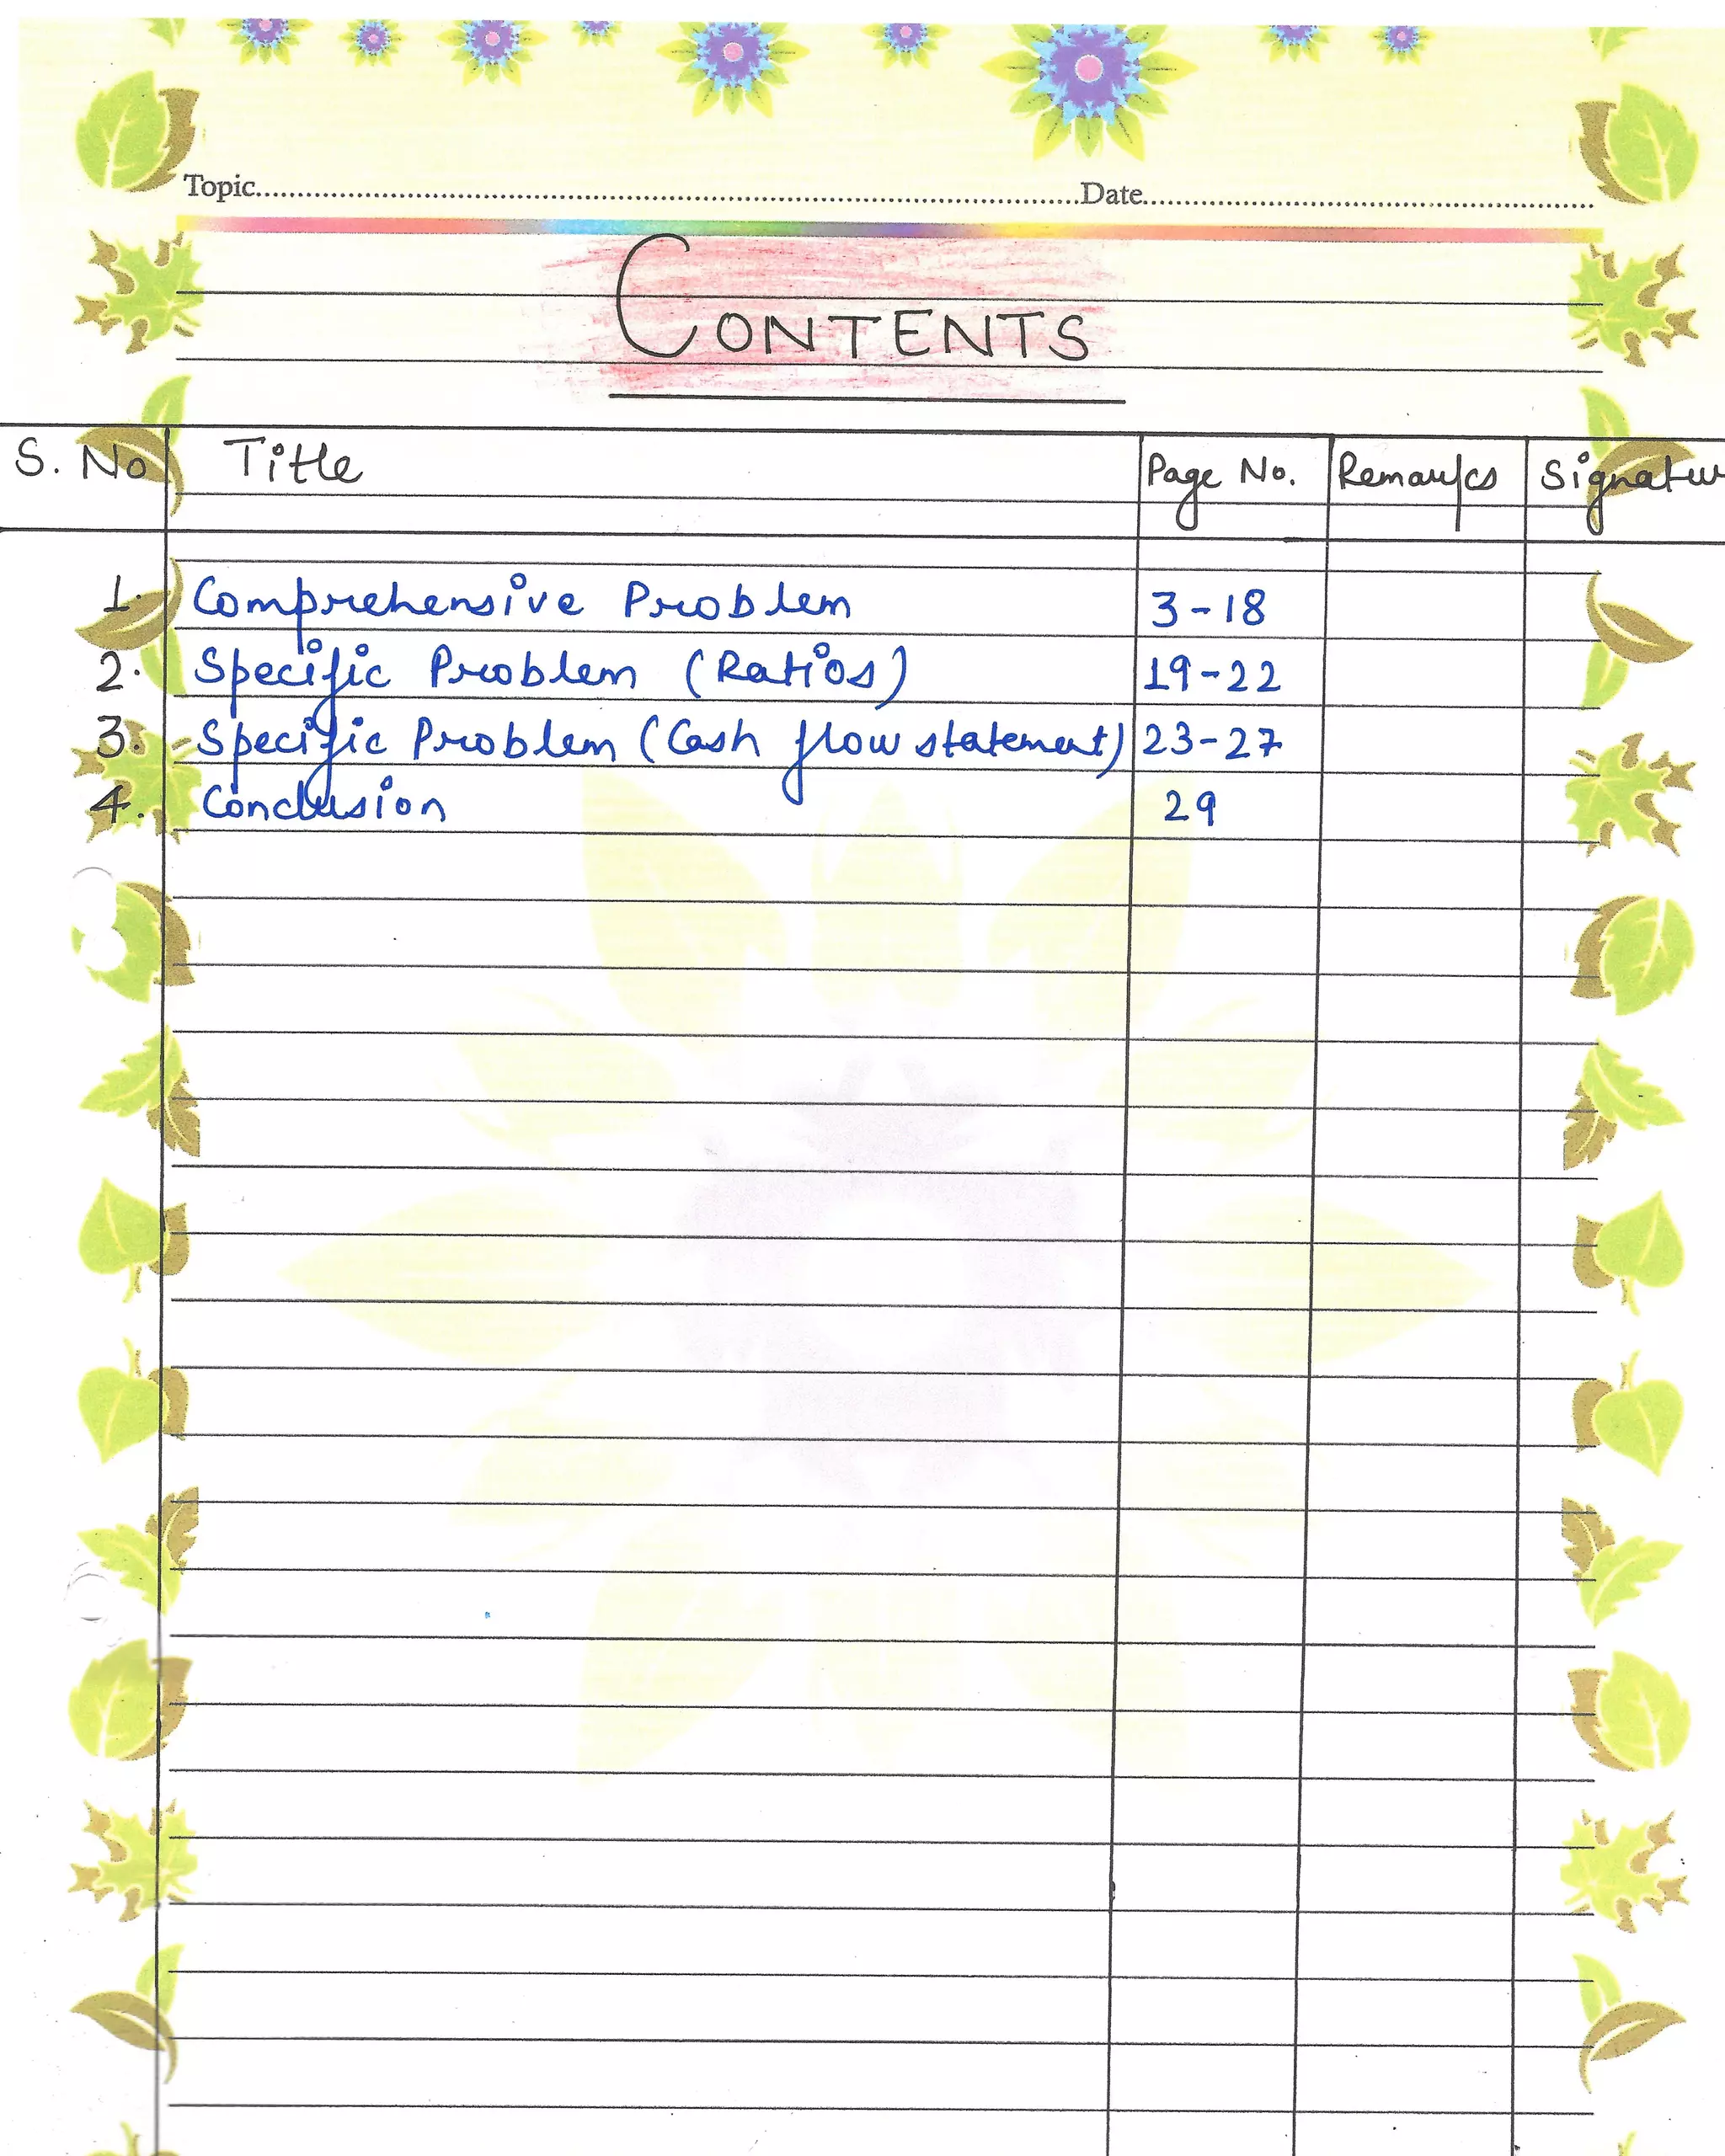 Topic........................Date........................
CONTENTS
S. No Title Page No. Remarks Signatur
1. Comprehensive Problem 3-18
2. Specific Problem (Ratios) 19-22
3. Specific Problem (Cash flow statement) 23-27
4. Conclusion 29